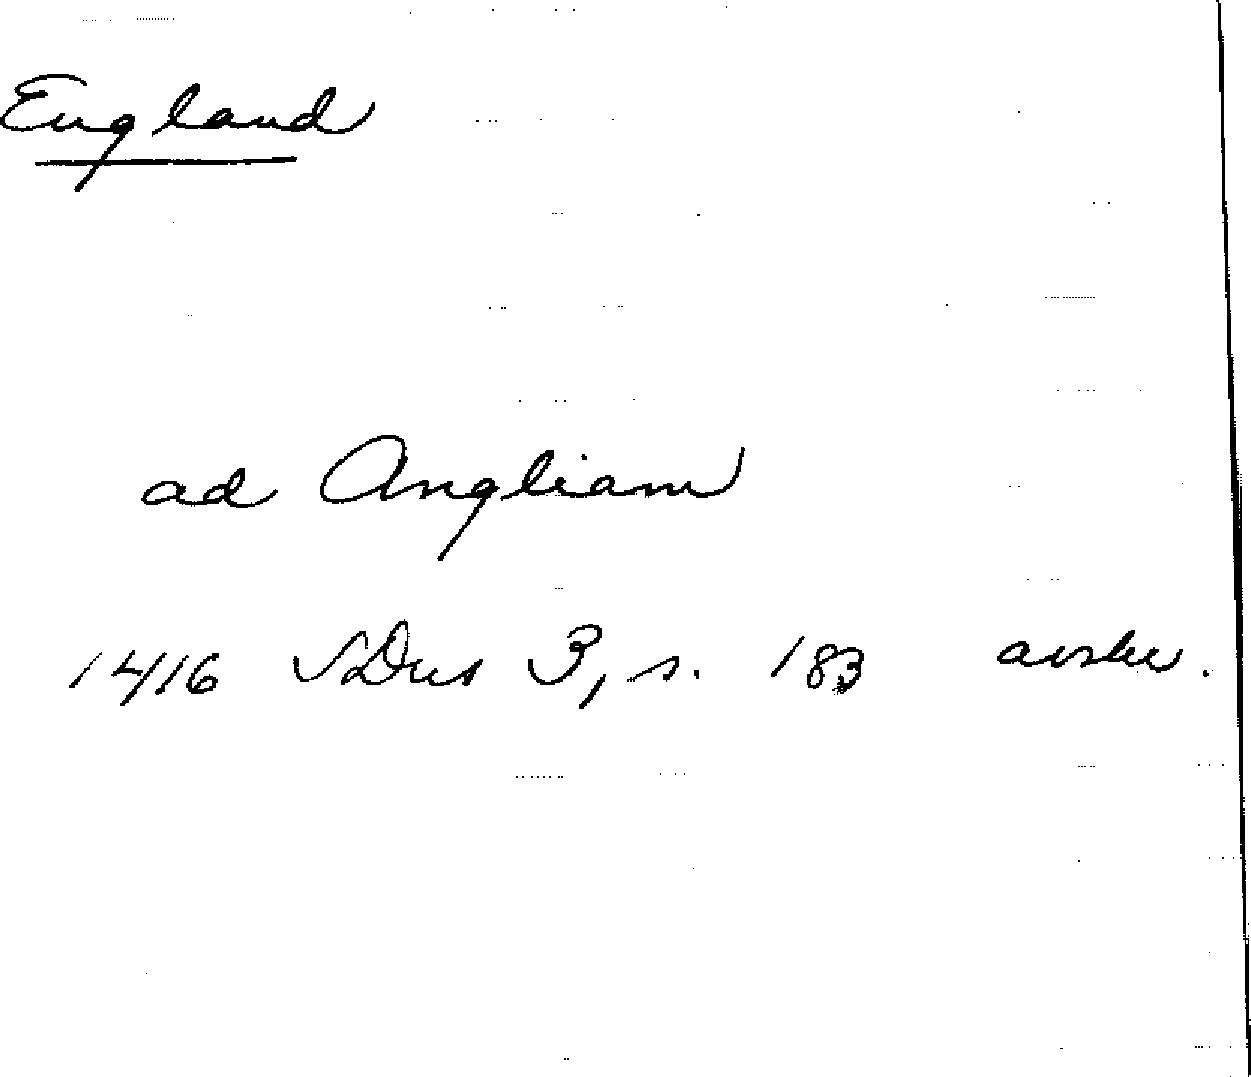 England
ad Angliam
1416 SDns 3, s. 183 avskr.